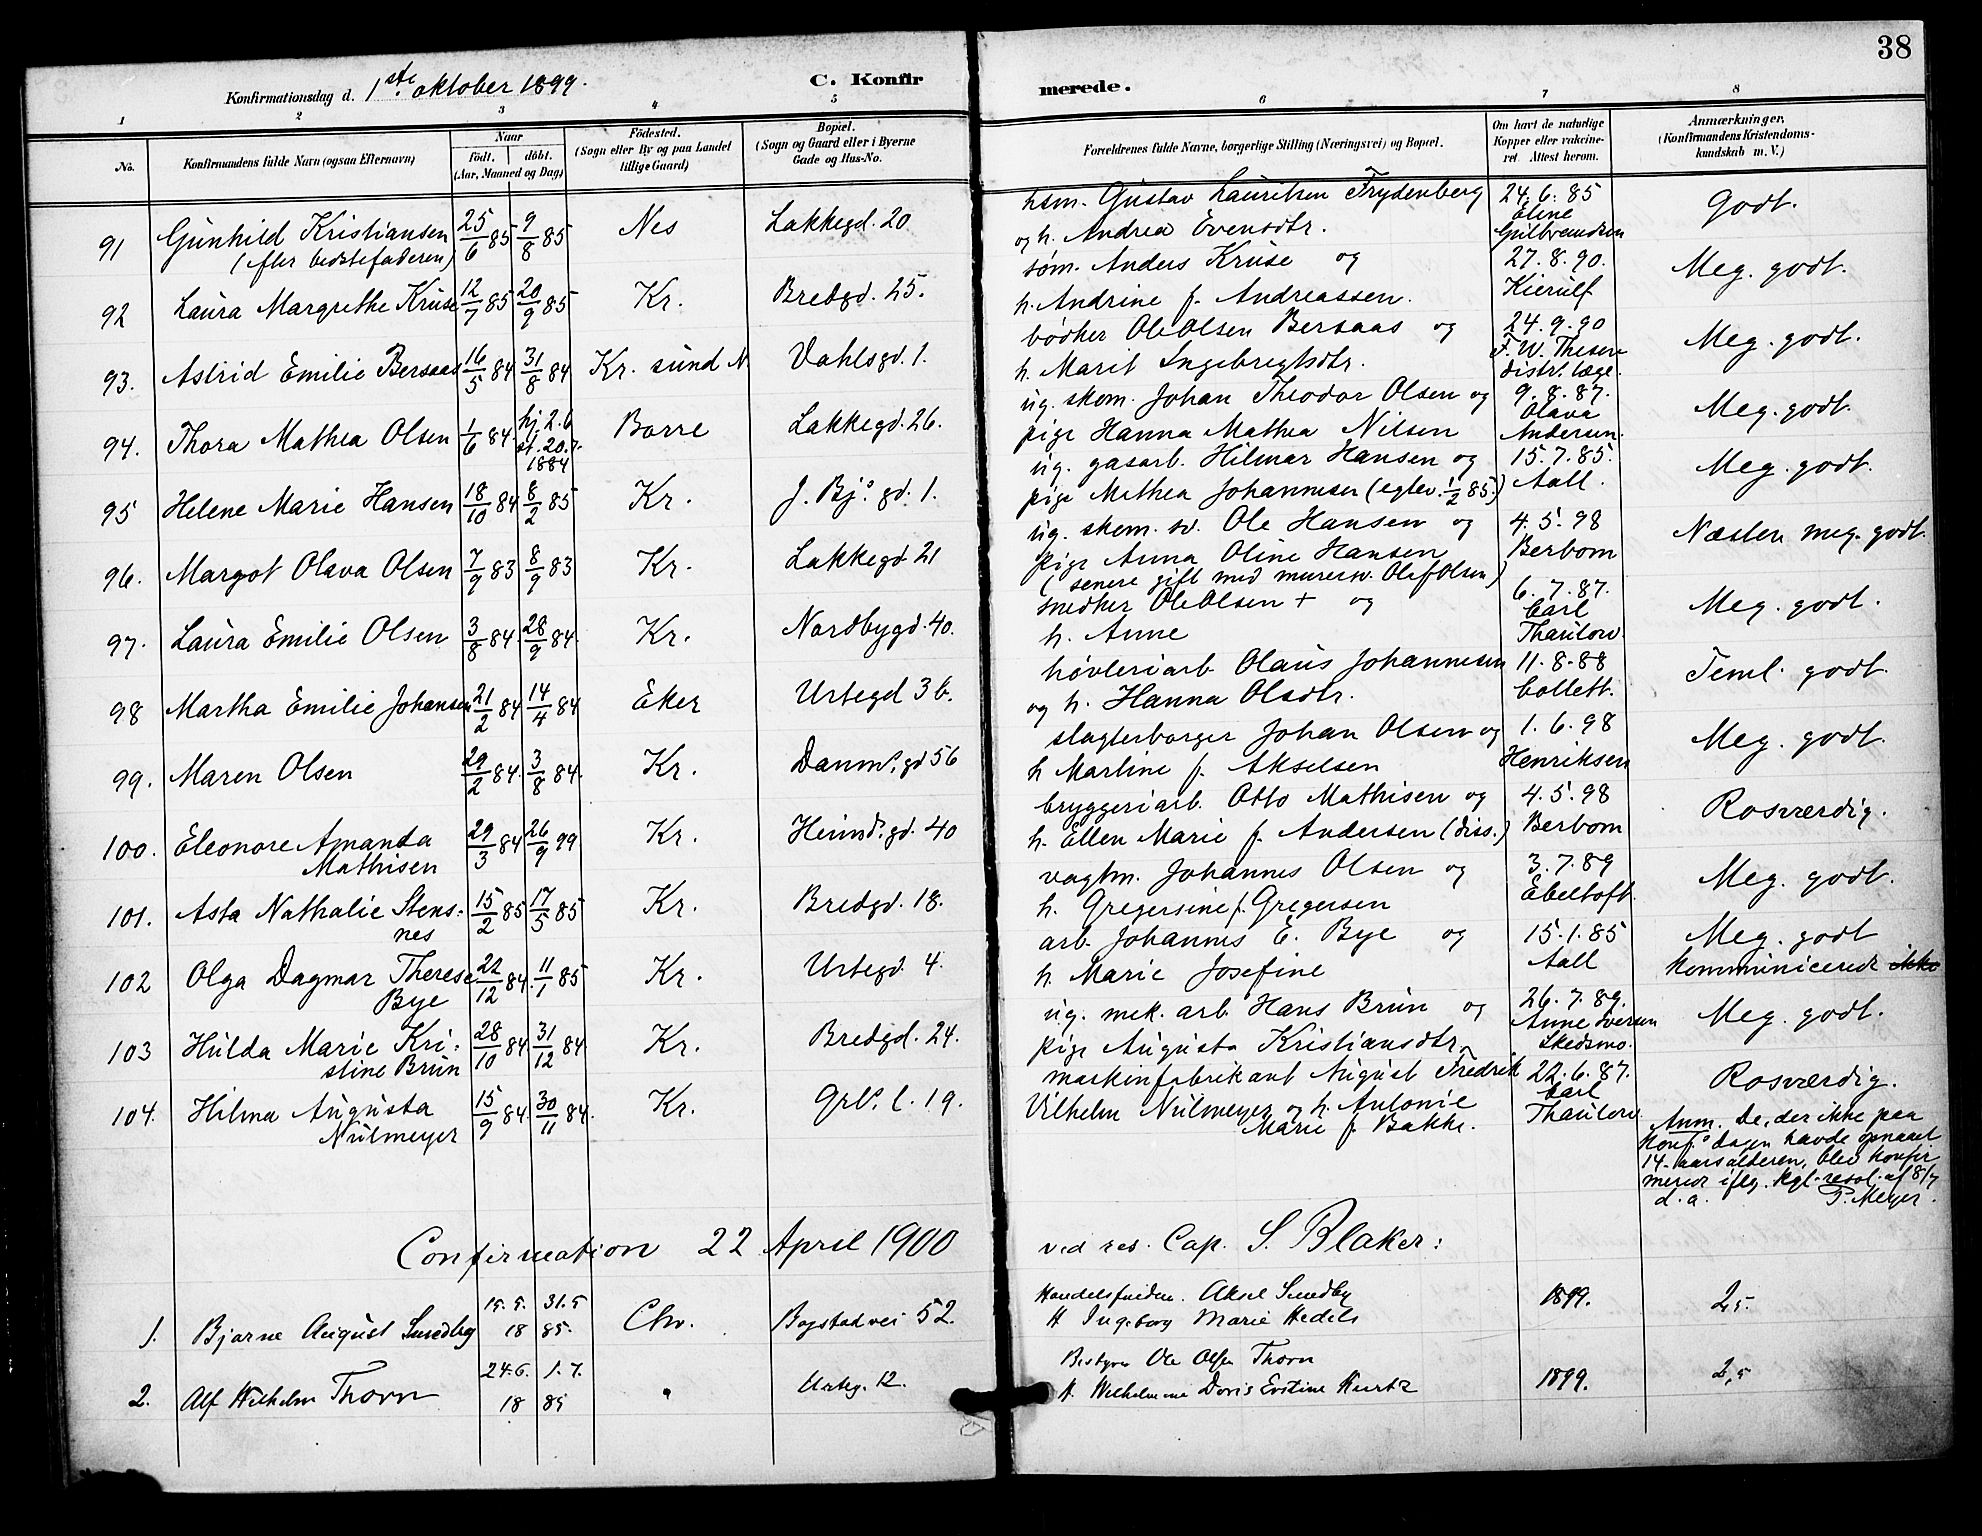 38
Konfirmationsdag d. 1ste oktober 1899.
C. Konfir merede.
1 2 3 4 5 6 7 8
No.
Konfirmandens fulde Navn (ogsaa Efternavn)
Naar
født. døbt.
(Aar, Maaned og Dag)
Fødested.
(Sogn eller By og paa Landet
tillige Gaard)
Bopæl.
(Sogn og Gaard eller i Byerne
Gade og Hus-No.
Forældrenes fulde Navne, borgerlige Stilling (Næringsvei) og Bopæl.
Om havt de naturlige
Kopper eller vakcine-
ret. Attest herom.
Anmærkninger,
(Konfirmandens Kristendoms-
kundskab m. V.)
91 Gunhild Kristiansen 25/6 85 9/8 85 Nes Lakkegd. 20
(efter bedstefaderen)
hsm. Gustav Lauritsen Frydenberg
og h. Andrea Evensdtr.
24. 6. 85
Eline
Gulbrandsen
Godt.
92 Laura Margrethe Kruse 12/7 85 20/9 85 Kr. Bredgd. 25.
søm. Anders Kruse og
h. Andrine f. Andreassen.
27. 8. 90.
Kierulf
Meg. godt.
93. Astrid Emilie Bersaas 16/5 84 31/8 84 Kr. sund N. Vahlsgd. 1.
bødker Ole Olsen Bersaas og
h. Marit Ingebregtsdtr.
24. 9. 90
F. W. Thesen
distr. læge.
Meg. godt.
94. Thora Mathea Olsen 1/6 84. hj. 2.6
st. 20.7.
1884
Borre Lakkegd. 26.
ug. skom. Johan Theodor Olsen og
pige Hanna Mathea Nilsen
9. 8. 87.
Olava
Andersen.
Meg. godt.
95 Helene Marie Hansen 18/10 84 8/2 85 Kr. J. Bj.s gd. 1.
ug. gasarb. Hilmar Hansen og
pige Mathea Johannesen (egtev. 1/2 85.)
15. 7. 85.
Aall.
Meg. godt.
96. Margot Olava Olsen 7/9 83 8/9 83 Kr. Lakkegd 21
ug. skom. sv. Ole Hansen og
pige Anna Oline Hansen
(senere gift med murersv. Olaf Olsen)
4. 5. 98
Berbom
Næsten meg. godt.
97. Laura Emilie Olsen 3/8 84. 28/9 84. Kr. Nordbygd. 40.
snedker Ole Olsen + og
h. Anne
6. 7. 87.
Carl
Thaulow.
Meg. godt.
98 Martha Emilie Johansen 21/2 84 14/4 84 Eker Urtegd 3 b.
høvleriarb. Olaus Johannesen
og h. Hanna Olsdtr.
11. 8. 88
Collett.
Teml. godt.
99. Maren Olsen 29/2 84. 3/8 84. Kr. Danm.s gd 56
slagterborger Johan Olsen og
h Martine f. Akselsen
1. 6. 98
Henriksen
Meg. godt.
100. Eleonore Amanda 29/3 84 26/9 99 Kr. Heimd.s gd. 40
Mathisen
bryggeriarb. Otto Mathisen og
h. Ellen Marie f. Andersen (diss.)
4. 5. 98
Berbom
Rosværdig.
101. Asta Nathalie Stens- 15/2 85 17/5 85 Kr. Bredgd. 18.
nes
vagtm. Johannes Olsen og
h. Gregersine f. Gregersen
3. 7. 89
Ebeltoft.
Meg. godt.
102 Olga Dagmar Therese 22/12 84. 11/1 85 Kr. Urtegd. 4.
Bye
arb. Johannes E. Bye og
h. Marie Josefine
15. 1. 85
Aall
Meg. godt
kommunicerede ikke
103 Hilda Marie Kri- 28/10 84 31/12 84 Kr. Bredgd. 24.
stine Brun
ug. mek. arb. Hans Brun og
pige Augusta Kristiansdtr.
26. 7. 89.
Anne Iversen
Skedsmo.
Meg. godt.
104. Hilma Augusta 15/9 84 30/11 84. Kr. Grl.s l. 19.
Nulmeyer
maskinfabrikant August Fredrik
Vilhelm Nulmeyer og h. Antonie
Marie f. Bakke.
22. 6. 87.
Carl
Thaulow
Rosværdig.
Anm. De, der ikke paa
konf.s dagen havde opnaaet
14-aarsalderen, blev konfir
meret iflg. kgl. resol. af 8/7
d. a. P. Meyer.
Confirmation 22 April 1900 ved res. Cap. S. Blaker:
1. Bjarne August Sundby 15. 5. 31. 5
18 85. Chr. Bogstadvei 52.
Aksel Sundby
H Ingeborg Marie
1899. 2,5
2. Alf Wilhelm Thorn 24. 6. 1. 7.
18 85 " Urteg. 12.
Bestyrer Ole Thorn
H. Wilhelmine Doris
1899. 2,5